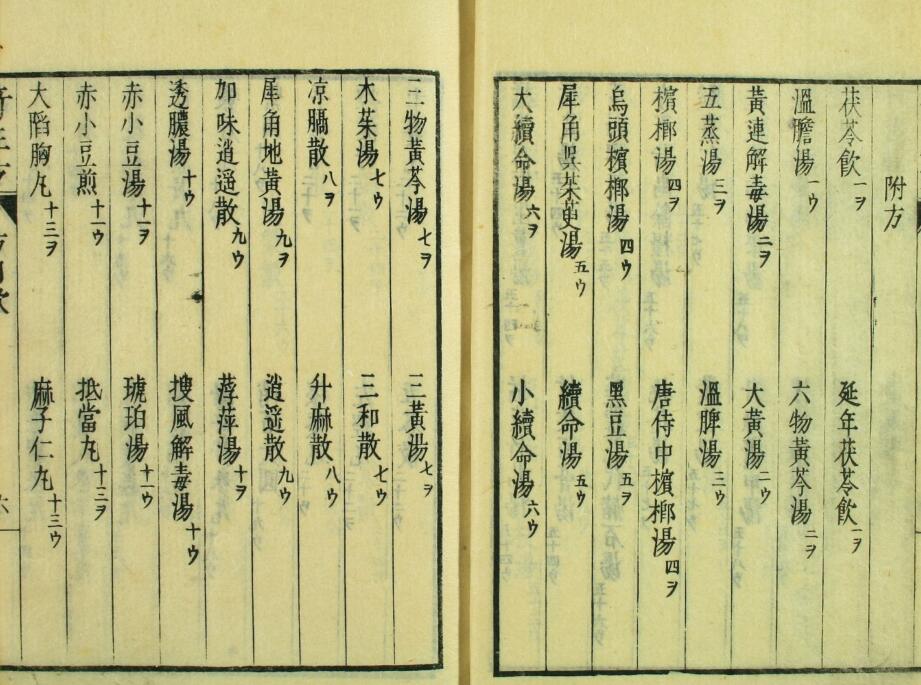 附方
茯苓飲一ヲ　延年茯苓飲一ヲ
溫膽湯一ウ　六物黃芩湯二ヲ
黃連解毒湯二ヲ　大黃湯二ウ
五蒸湯三ヲ　溫脾湯三ウ
檳榔湯四ヲ　唐侍中檳榔湯四ヲ
烏頭檳榔湯四ウ　黑豆湯五ヲ
犀角吳茱萸湯五ウ　續命湯五ウ
大續命湯六ヲ　小續命湯六ウ
三物黃芩湯七ヲ　三黃湯七ヲ
木茱湯七ウ　三和散七ウ
凉膈散八ヲ　升麻散八ウ
犀角地黃湯九ヲ　逍遥散九ウ
加味逍遥散九ウ　浮萍湯十ヲ
透膿湯十ウ　搜風解毒湯十ウ
赤小豆湯十一ヲ　琥珀湯十一ウ
赤小豆煎十一ウ　抵當丸十三ヲ
大陷胸丸十三ヲ　麻子仁丸十三ウ